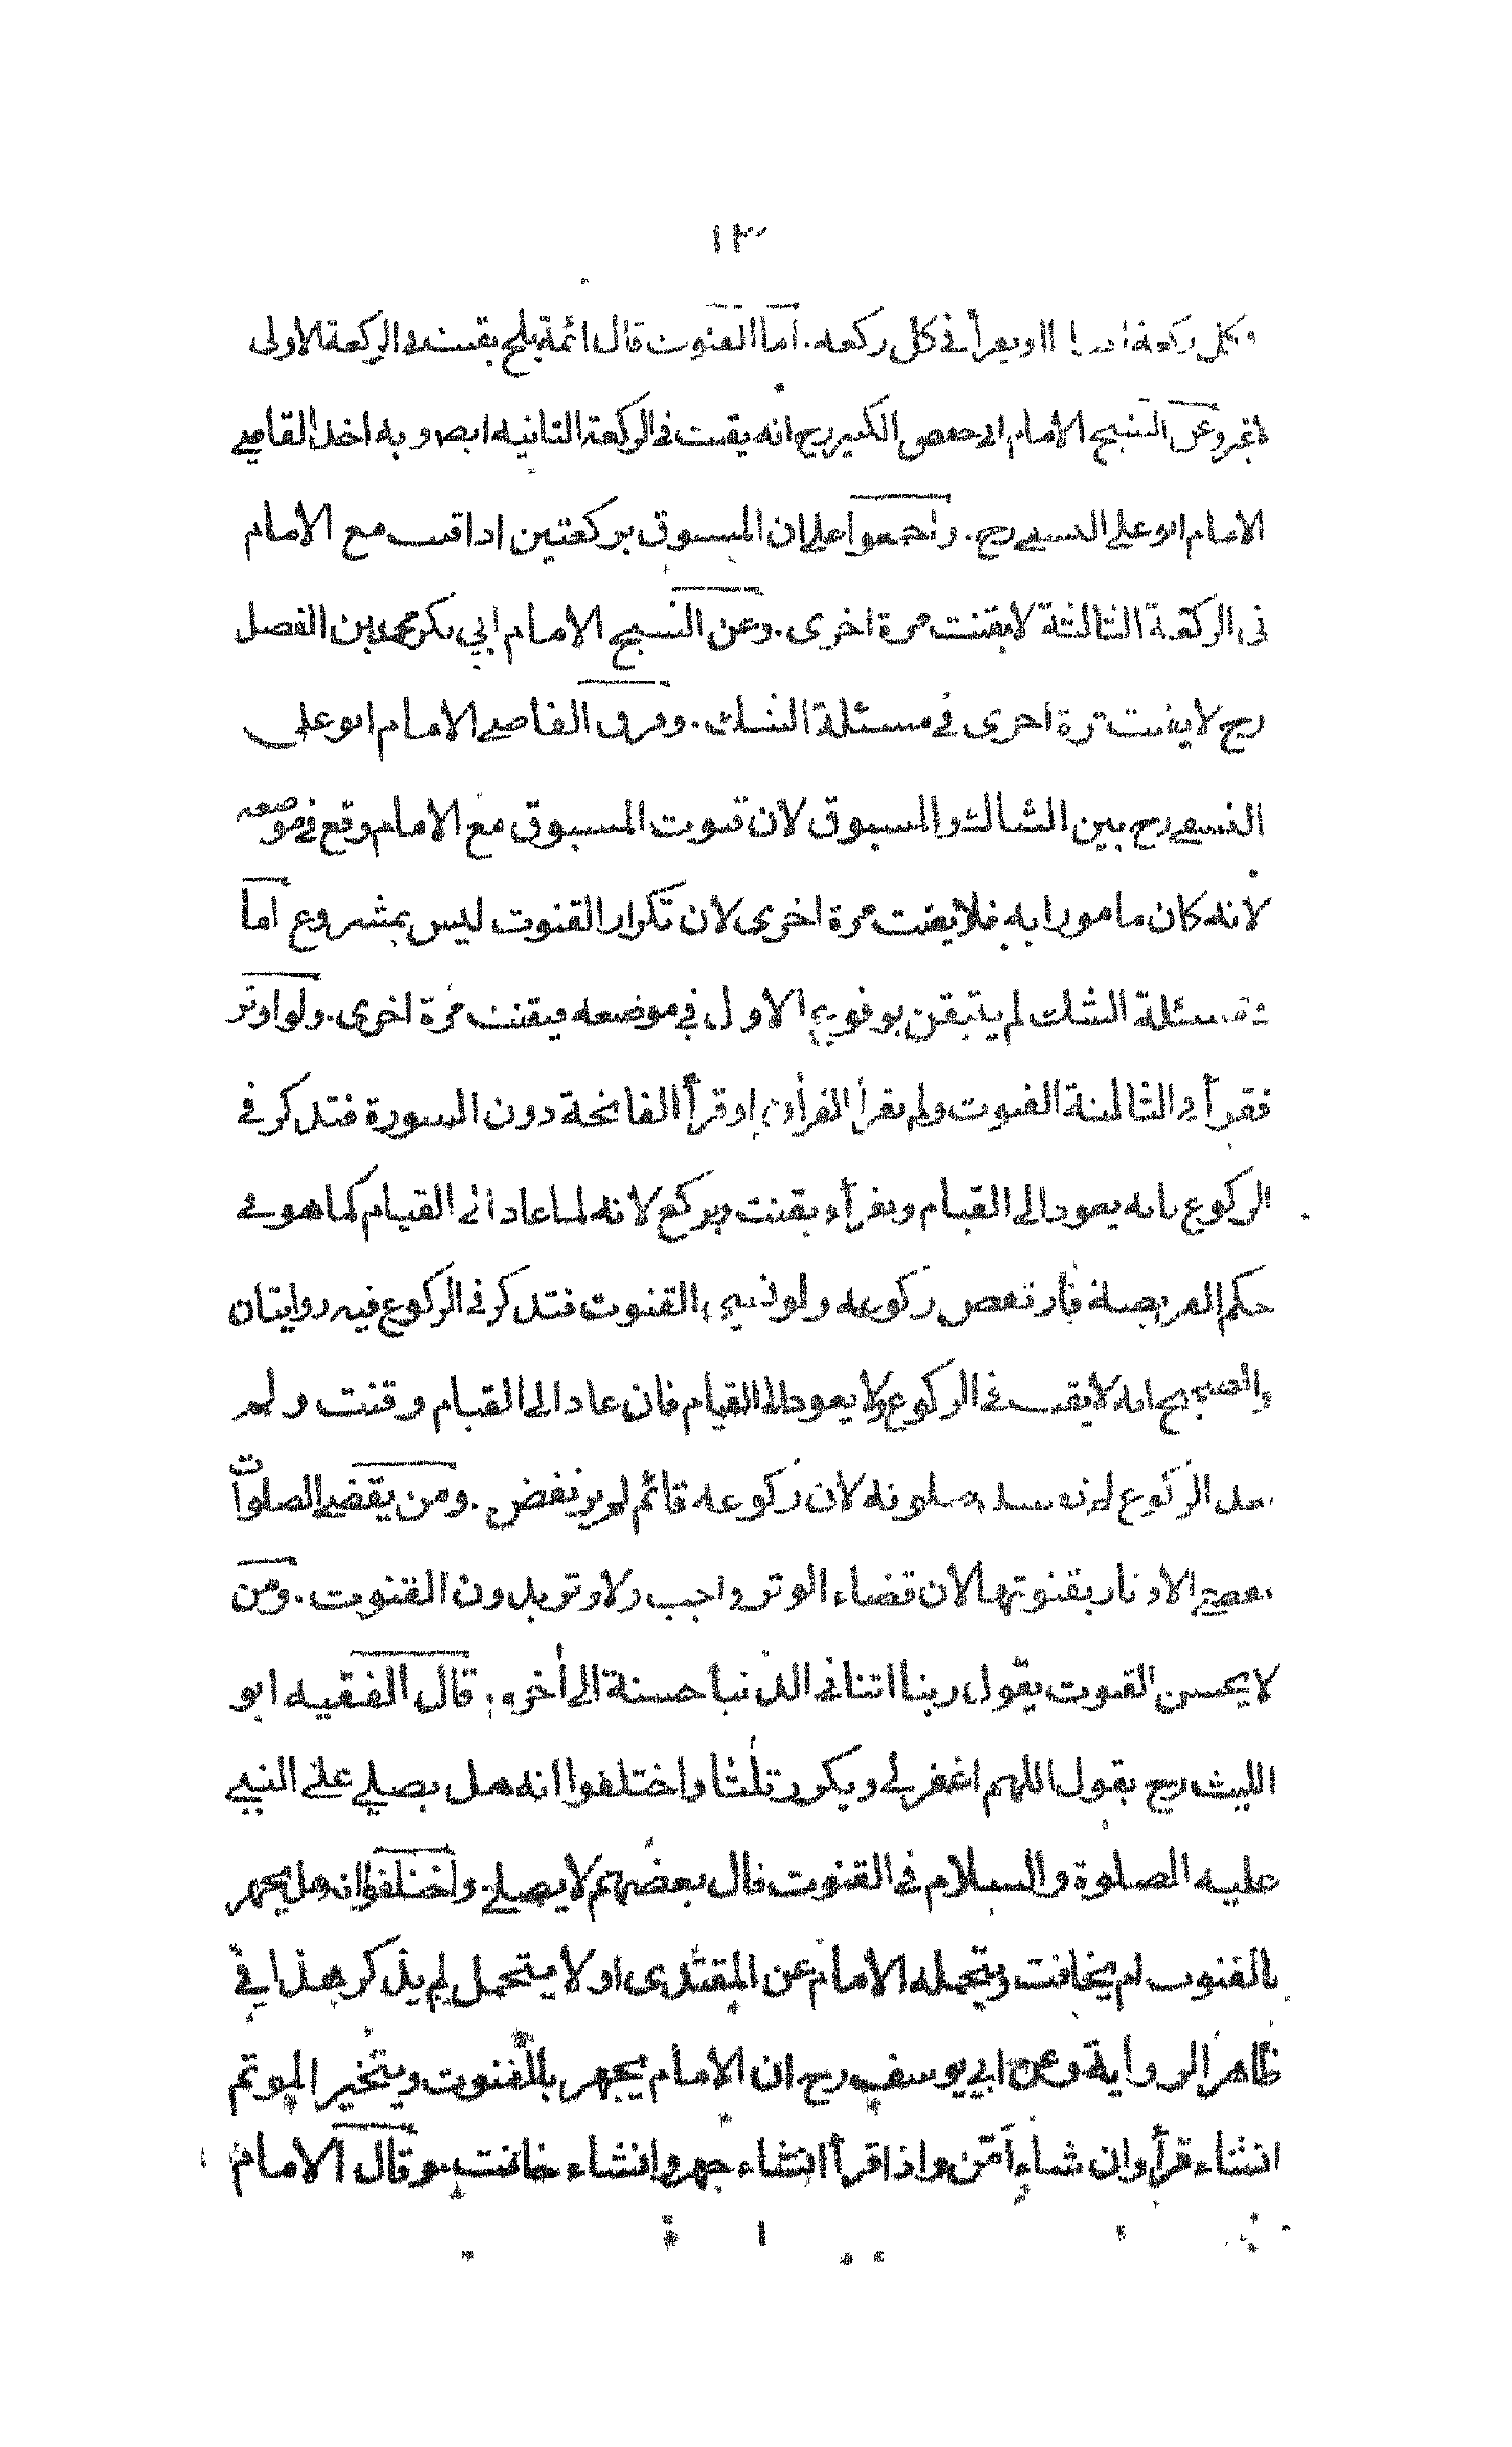 ١٣
وكل ركعة ويقرأ في كل ركعه. اما القنوت قال ائمة بلخ يقنت في الركعة الاولى
لاغير وعن الشيخ الامام ابى حفص الكبير رح انه يقنت في الركعة الثانيه ايضا وبه اخذ القاضي
الامام ابو على النسفي رح. واجمعوا على ان المسبوق بركعتين اذا قنت مع الامام
فى الركعة الثالثة لا يقنت مرة اخرى. وعن الشيخ الامام ابي بكر محمد بن الفضل
رح لا يقنت مرة اخرى في مسئلة الشك. وفرق القاضي الامام ابو على
النسفي رح بين الشاك والمسبوق لان قنوت المسبوق مع الامام وقع في موضعه
لانه كان مامورا به فلا يقنت مرة اخرى لان تكرار القنوت ليس بمشروع اما
في مسئلة الشك لم يتيقن بوقوع الاول في موضعه فيقنت مرة اخرى. ولو اوتر
فقرأ في الثالثة القنوت ولم يقرأ القرأن او قرأ الفاتحة دون السورة فتذكر في
الركوع بانه يعود الى القيام ويقرأ ويقنت ويركع لانه لما عاد الى القيام كما هو في
حكم الفريضة فارتفض ركوعه ولو نسي القنوت فتذكر في الركوع فيه روايتان
والصحيح انه لا يقنت في الركوع ولا يعود الى القيام فان عاد الى القيام وقنت ولم
يعد الركوع لم تفسد صلوته لان ركوعه قائم لم يرتفض. ومن يقضي الصلوات
يقضي الاوتار بقنوتها لان قضاء الوتر واجب ولا وتر بدون القنوت. ومن
لا يحسن القنوت يقول ربنا اتنا فى الدنيا حسنة الى أخره. قال الفقيه ابو
الليث رح يقول اللهم اغفر لي ويكرر ثلثا واختلفوا انه هل يصلي على النبي
عليه الصلوة والسلام في القنوت قال بعضهم لا يصلي. واختلفوا انه هل يجهر
بالقنوت ام يخافت ويتحمله الامام عن المقتدى او لا يتحمل لم يذكر هذا في
ظاهر الرواية وعن ابي يوسف رح ان الامام يجهر بالقنوت ويتخير الموتم
انشاء قرأ وان شاء أمّن واذا قرأ انشاء جهر وانشاء خافت. وقال الامام